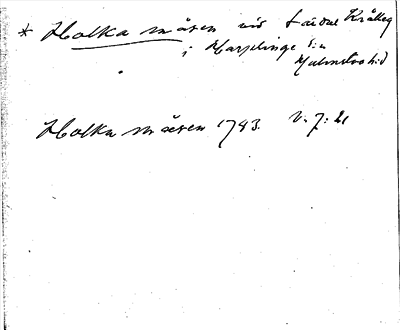 * Holka måsen vid Södra Kråkeg
i Harplinge s:n
Halmstads hd
Holka måsen 1793. V. 7: 21